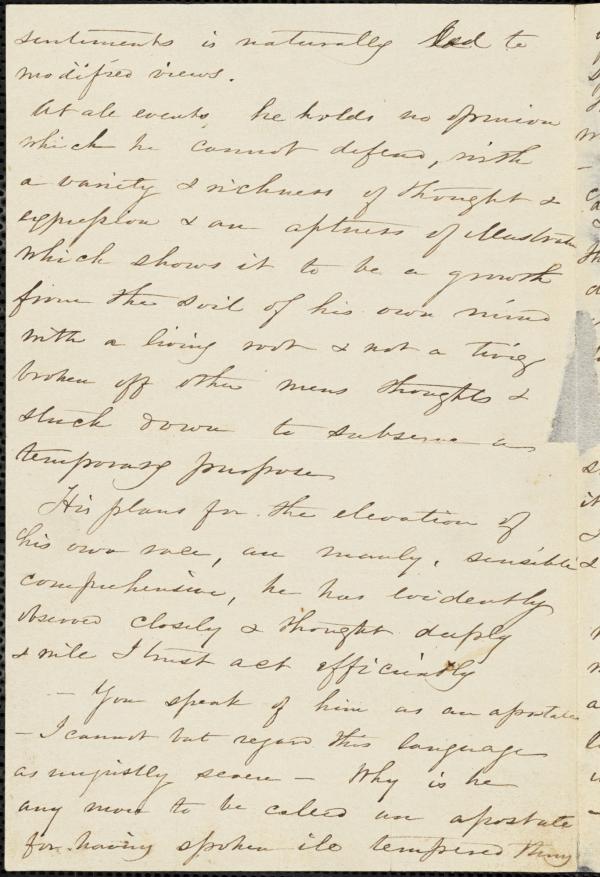 sentiments is naturally led to
modified views.
At all events, he holds no opinion
which he cannot defend, with
a variety & richness of thought &
expression & an aptness of illustration
which shows it to be a growth
from the soil of his own mind
with a living root & not a twig
broken off other mens thoughts &
stuck down to subserve a
temporary purpose
His plans for the elevation of
his own race, are manly, sensible
comprehensive, he has evidently
observed closely & thought deeply
& will I trust act efficiently
– You speak of him as an apostate
– I cannot but regard this language
as unjustly severe – Why is he
any more to be called an apostate
for having spoken ill tempered things